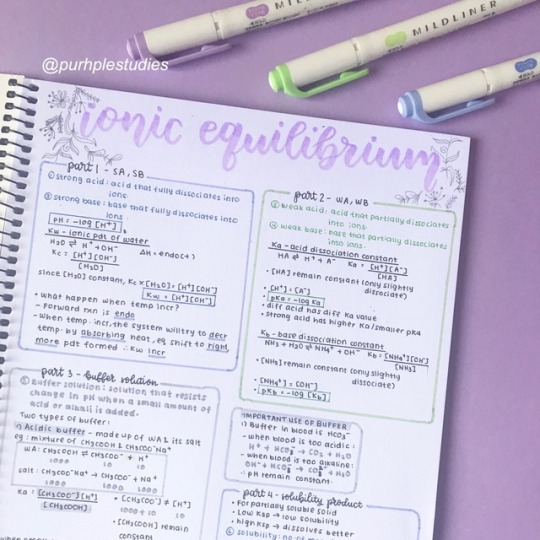 @purhplestudies
MILDLINER
MILDLINER
ionic equilibrium
part 1 - SA, SB
① Strong acid : acid that fully dissociates into
ions
② Strong base : base that fully dissociates into
ions
pH = -log [H⁺]
Kw - ionic pdt of water
H₂O ⇌ H⁺ + OH⁻ ΔH = endo(+)
Kc = [H⁺][OH⁻]
[H₂O]
since [H₂O] constant, Kc x [H₂O] = [H⁺][OH⁻]
Kw = [H⁺][OH⁻]
• what happen when temp incr?
- Forward rxn is endo
- When temp. incr, the system will try to decr
temp. by absorbing heat, eq shift to right,
more pdt formed ∴ Kw incr
part 2 - WA, WB
weak acid : acid that partially dissociates
into ions
weak base : base that partially dissociates
into ions.
Ka - acid dissociation constant
HA ⇌ H⁺ + A⁻ Ka = [H⁺][A⁻]
[HA]
• [HA] remain constant (only slightly
dissociate)
• [H⁺] = [A⁻]
• pKa = -log Ka
• diff acid has diff Ka value
• Strong acid has higher Ka/smaller pka
Kb - base dissociation constant
NH₃ + H₂O ⇌ NH₄⁺ + OH⁻ Kb = [NH₄⁺][OH⁻]
[NH₃]
• [NH₃] remain constant (only slightly
dissociate)
• [NH₄⁺] = [OH⁻]
• pKb = -log [Kb]
part 3 - buffer solution
Buffer solution : solution that resists
change in pH when a small amount of
acid or alkali is added.
Two types of buffer:
i) Acidic buffer - made up of WA & its salt
eg : mixture of CH₃COOH & CH₃COO⁻Na⁺
WA : CH₃COOH ⇌ CH₃COO⁻ + H⁺
1000 10 10
salt : CH₃COO⁻Na⁺ → CH₃COO⁻ + Na⁺
1000 1000 1000
Ka = [CH₃COO⁻][H⁺]
[CH₃COOH]
• [CH₃COO⁻] ≠ [H⁺]
1000 + 10 10
• [CH₃COOH] remain
constant
IMPORTANT USE OF BUFFER
i) Buffer in blood is HCO₃⁻
- when blood is too acidic :
H⁺ + HCO₃⁻ → CO₂ + H₂O
- when blood is too alkaline:
OH⁻ + HCO₃⁻ → CO₃²⁻ + H₂O
∴ pH remain constant
part 4 - solubility product
• For partially soluble solid
• Low Ksp → low solubility
• high Ksp → dissolves better
solubility : no. of